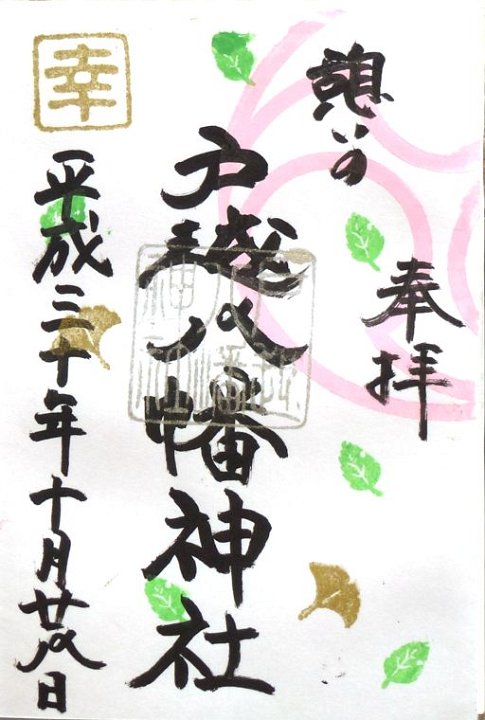 憩いの
奉拝
戸越八幡神社
平成三十年十月廿八日
幸